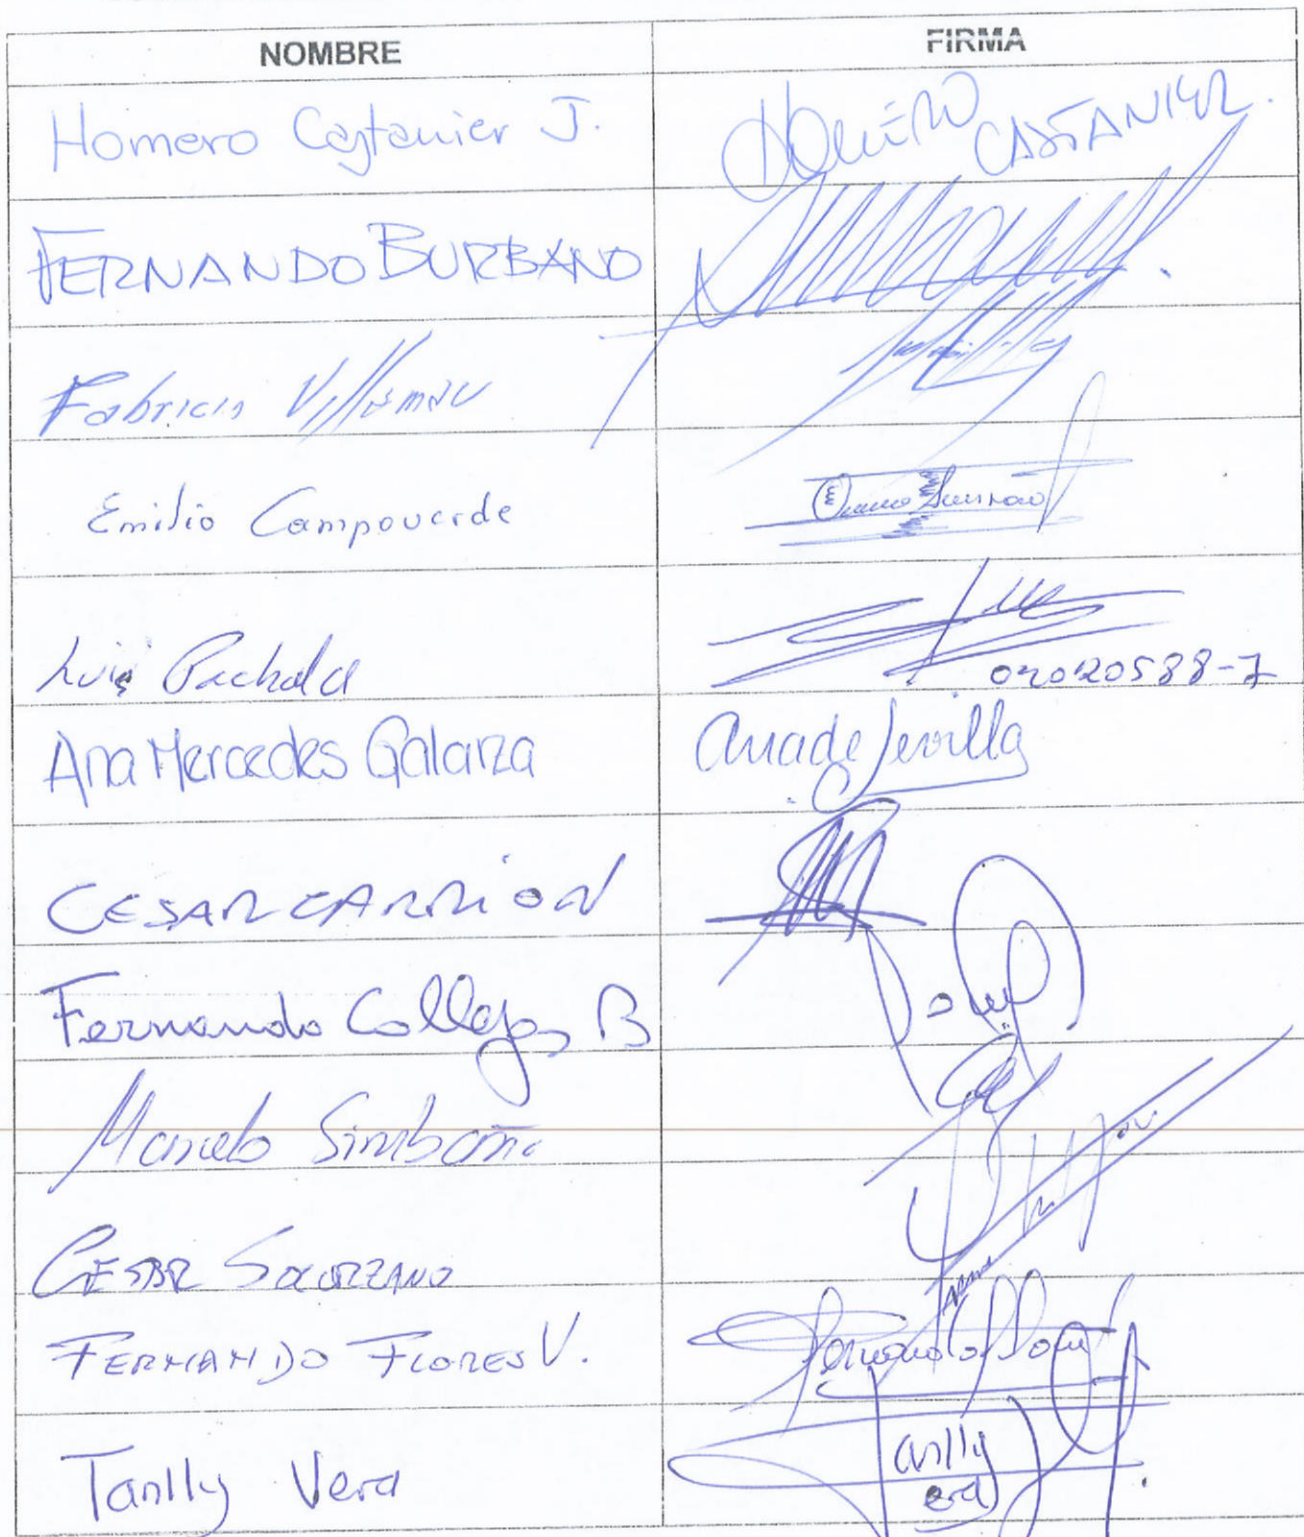 NOMBRE FIRMA
Homero Castanier J. Homero CASTANIER.
FERNANDO BURBANO
Fabricio Villamar
Emilio Campoverde
Luis Pachala
02020588-7
Ana Mercedes Galarza Ana de Sevilla
CESAR CARRION
Fernando Callejas B
Marcelo Simbaña
CESAR SOLORZANO
FERNANDO FLORES V. Fernando
Tanlly Vera